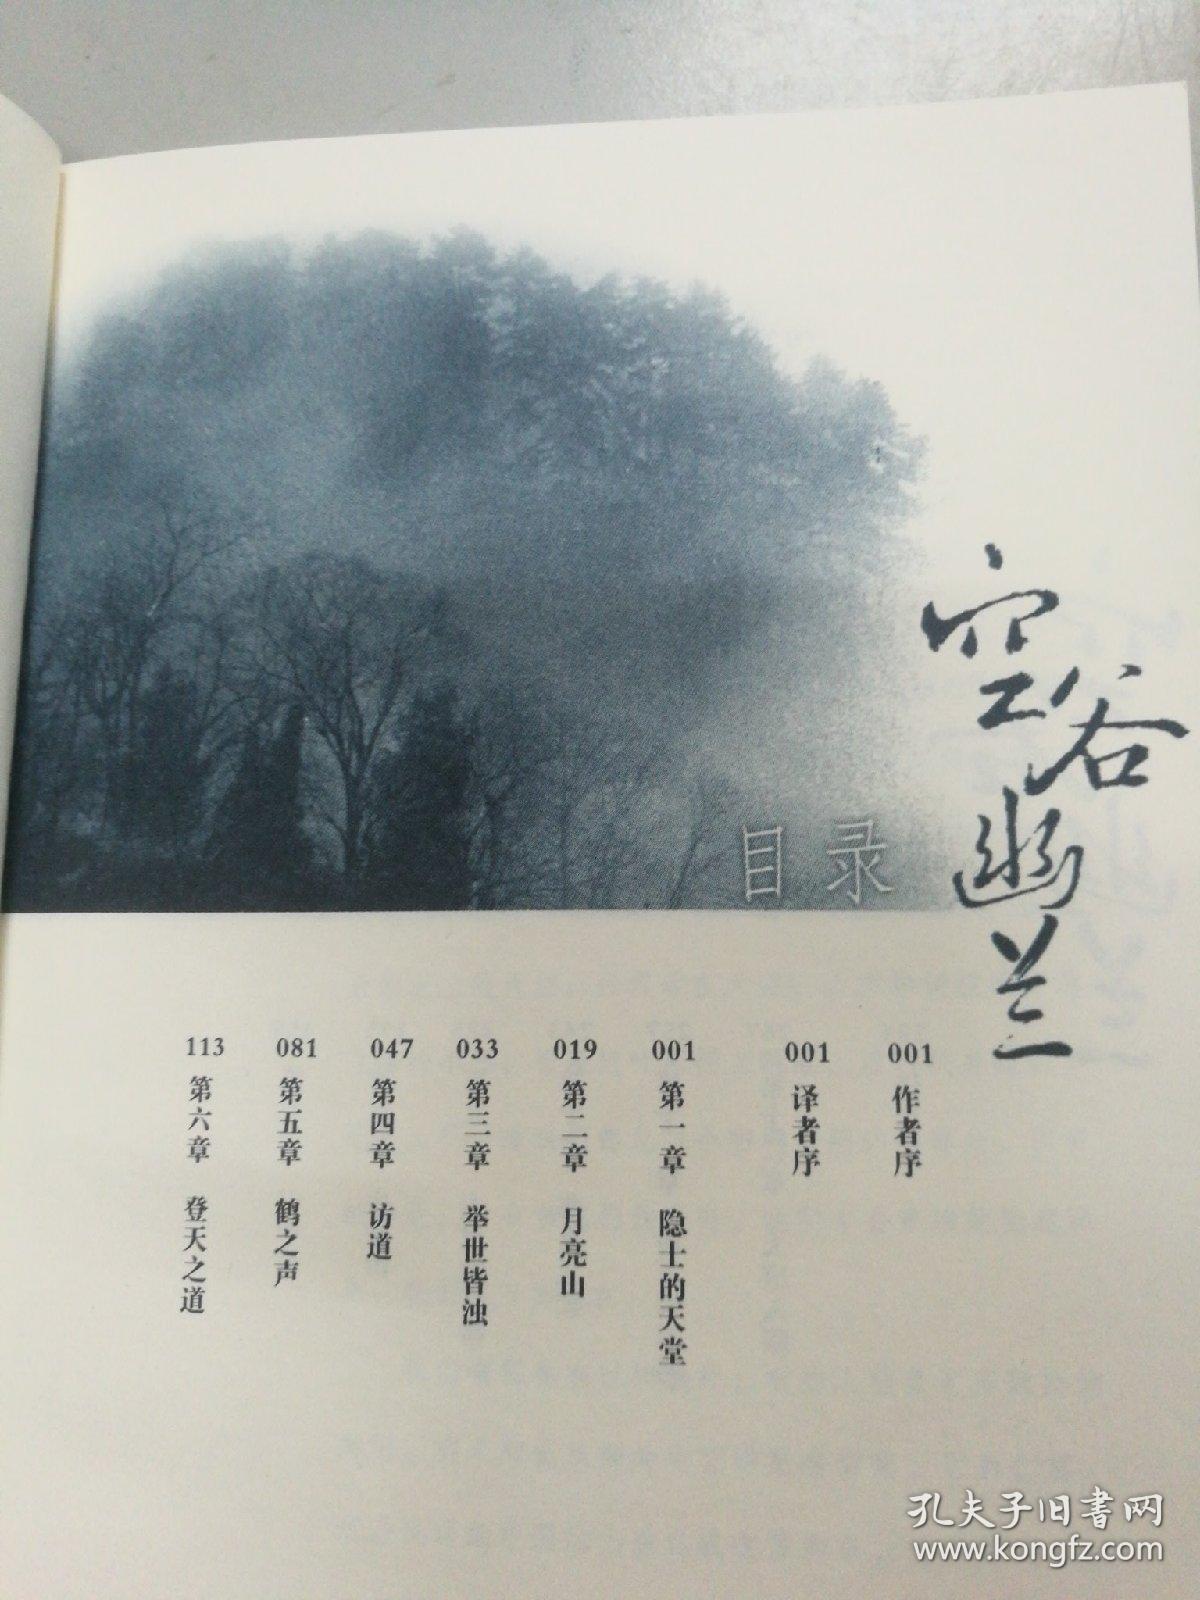 空谷幽兰
目录
001 作者序
001 译者序
001 第一章 隐士的天堂
019 第二章 月亮山
033 第三章 举世皆浊
047 第四章 访道
081 第五章 鹤之声
113 第六章 登天之道
孔夫子旧书网
www.kongfz.com